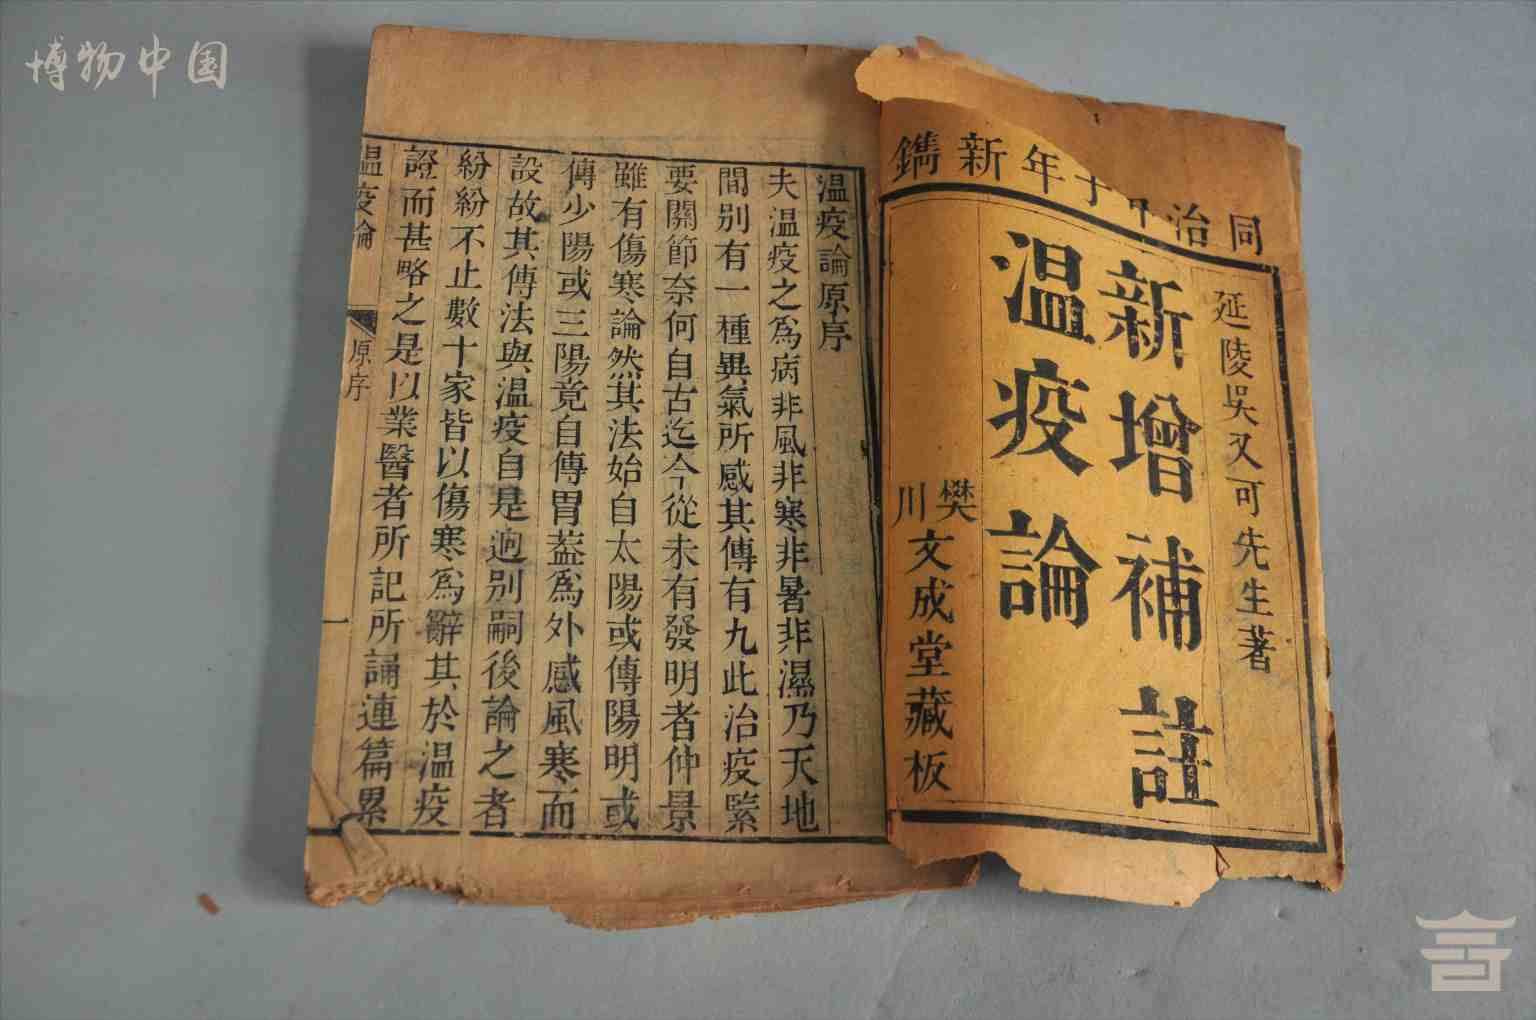 博物中国
同治 十年新鐫
延陵吳又可先生著
新增補註
温疫論
樊川文成堂藏板
温疫論原序
夫温疫之爲病非風非寒非暑非濕乃天地
間別有一種異氣所感其傳有九此治疫緊
要關節奈何自古迄今從未有發明者仲景
雖有傷寒論然其法始自太陽或傳陽明或
傳少陽或三陽竟自傳胃蓋爲外感風寒而
設故其傳法與温疫自是逈別嗣後論之者
紛紛不止數十家皆以傷寒爲辭其於温疫
證而甚略之是以業醫者所記所誦連篇累
温疫論 原序 一